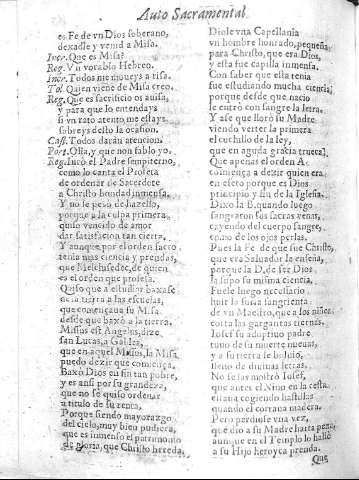 Auto Sacramental.
es Fè de vn Dios soberano,
dexadle y venid a Misa.
Incr. Que es Misa?
Reg. Vn vocablo Hebreo.
Incr. Todos me mueys a risa.
Tol. Quien viene de Misa creo.
Reg. Que es sacrificio os auisa,
y para que lo entendays
si vn rato atento me estays
sobre ys desto la ocasion.
Cast. Todos daràn atencion.
Port. Ossa, y que non fablo yo.
Reg. Iurò el Padre sempiterno,
como lo canta el Profeta
de ordenar de Sacerdote
a Christo bondad inmensa.
Y no le pesò de hazello,
porque a la culpa primera
quiso vencido de amor
dar satisfacion tan cierta.
Y aunque por el orden sacro
tenia mas ciencia y prendas,
que Melchisedec, de quien
es el orden que profesa.
Quiso que a estudios baxase
de la tierra a las escuelas,
que començaua su Misa
desde que baxò a la tierra.
Missus est Angelus, dize
san Lucas, a Galilea,
que en aquel Missus, la Misa
puedo dezir que comença.
Baxò Dios en fin tan pobre,
y es ansi por su grandeza,
que no se quiso ordenar
a titulo de su renta,
Porque siendo mayorazgo
del cielo, muy bien pudiera,
que es inmenso el patrimonio
de gloria, que Christo hereda.
Diole vna Capellania
vn hombre honrado, pequeña
para Christo, que era Dios,
y esta fue capilla inmensa.
Con saber que esta tenia
fue estudiando mucha ciencia,
porque desde que nacio
le entrò con sangre la letra.
Y asi que llorò su Madre
viendo verter la primera
el cuchillo de la ley,
que en aguda gracia trueca.
Que apenas el orden A.
comiença a dezir quien era
en efeto porque es Dios
principio y fin de la Iglesia.
Dixo la B. quando luego
sangraron sus sacras venas,
cayendo del cuerpo sangre,
como de los ojos perlas.
Pues la Fe de que fue Christo,
que era Saluador la enseña,
porque la D. de ser Dios
la supo su misma ciencia,
Fuele luego necessario
huir la furia sangrienta
de vn Maestro, que a los niños
corta las gargantas tiernas.
Iosef su adoptiuo padre
tuuo de su muerte nueuas,
y a su tierra se boluiò,
lleno de diuinas letras.
No se las mostrò Iosef,
que antes el Niño en la cesta
estaua cogiendo hastillas
quando el cortaua madera.
Pero perdiose vna vez,
que dio a su Madre harta pena,
aunque en el Templo lo hallò
a su Hijo heroyca prenda.
Que